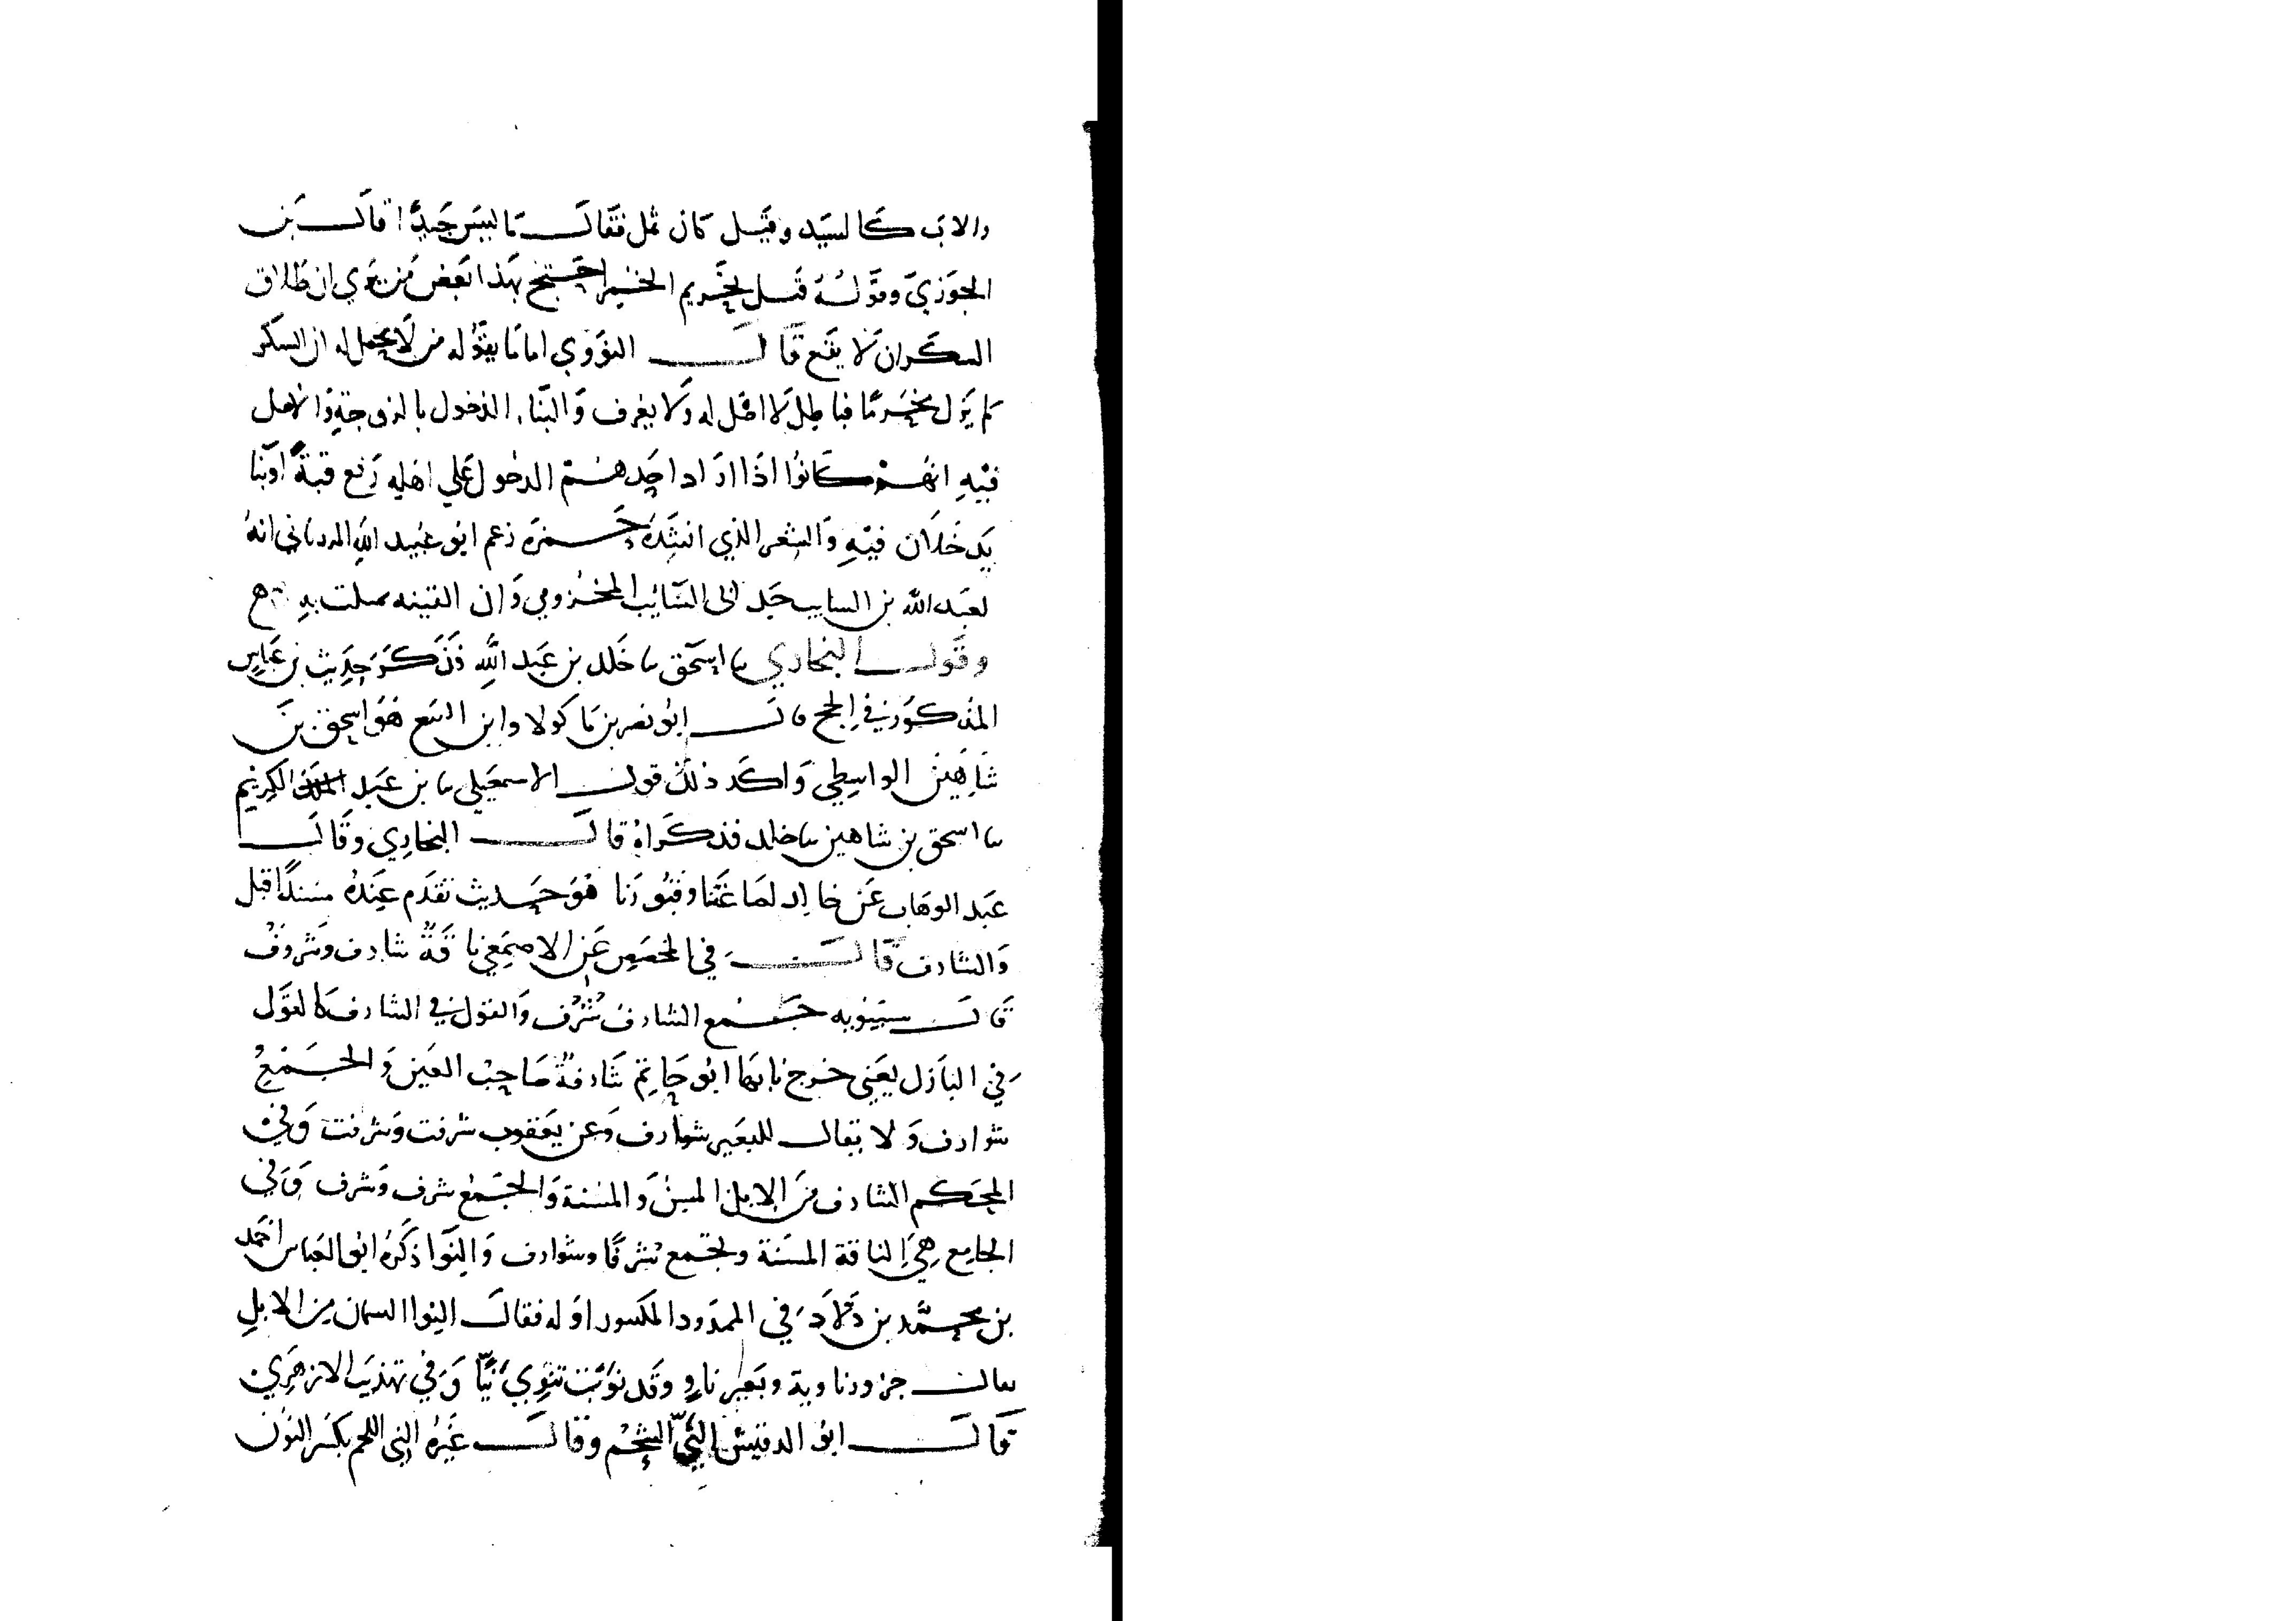 والاب كالسيد وقيل كان ثمل فقال ما ليس جيدا قال بن
الجوزي وقوله قبل تحريم الخمر احتج بهذا بعض من يري ان طلاق
السكران لا يقع قال النووي اما ما يقوله من لا يحصل له ان السكر
لم يزل محرما فباطل لا اصل له ولا يعرف والبناء الدخول بالزوجة والاصل
فيه انهم كانوا اذا اراد احدهم الدخول علي اهله رفع قبة او بنا
يدخلان فيه والشعر الذي انشده حمزة زعم ابو عبيد الله المرزباني انه
لعبد الله بن السايب جد ابي السائب المخزومي وان القينه تمثلت به
وقول البخاري نا اسحق نا خلد بن عبد الله فذكر حديث بن عباس
المذكور في الحج قال ابو نصر بن ماكولا وابن البيع هو اسحق بن
شاهين الواسطي واكد ذلك قول الاسمعيلي نا بن عبد الكريم
نا اسحق بن شاهين نا خلد فذكراه قال البخاري وقال
عبد الوهاب عن خالد لصاغتنا وقبورنا هو حديث تقدم عنده مسندا قبل
والشارف قال في المخصص عن الاصمعي ناقة شارف وشروف
قال سيبويه جمع الشارف شرف والقول في الشارف كالقول
في البازل يعني خرج نابها ابو حاتم شارفة صاحب العين والجمع
شوارف ولا يقال للبعير شوارف وعن يعقوب شرفت وشرفت وفي
المحكم الشارف من الابل المسن والمسنة والجمع شرف وشرف وفي
الجامع هي الناقة المسنة وتجمع شرفا وشوارف والنوا ذكره ابو العباس احمد
بن محمد بن ولاد في الممدود المكسور اوله فقال النوا السمان من الابل
يقال جزور ناوية وبعير ناو وقد نوت تنوي نيا وفي تهذيب الازهري
قال ابو الدقيش الني الشحم وقال غيره الني اللحم بكسر النون